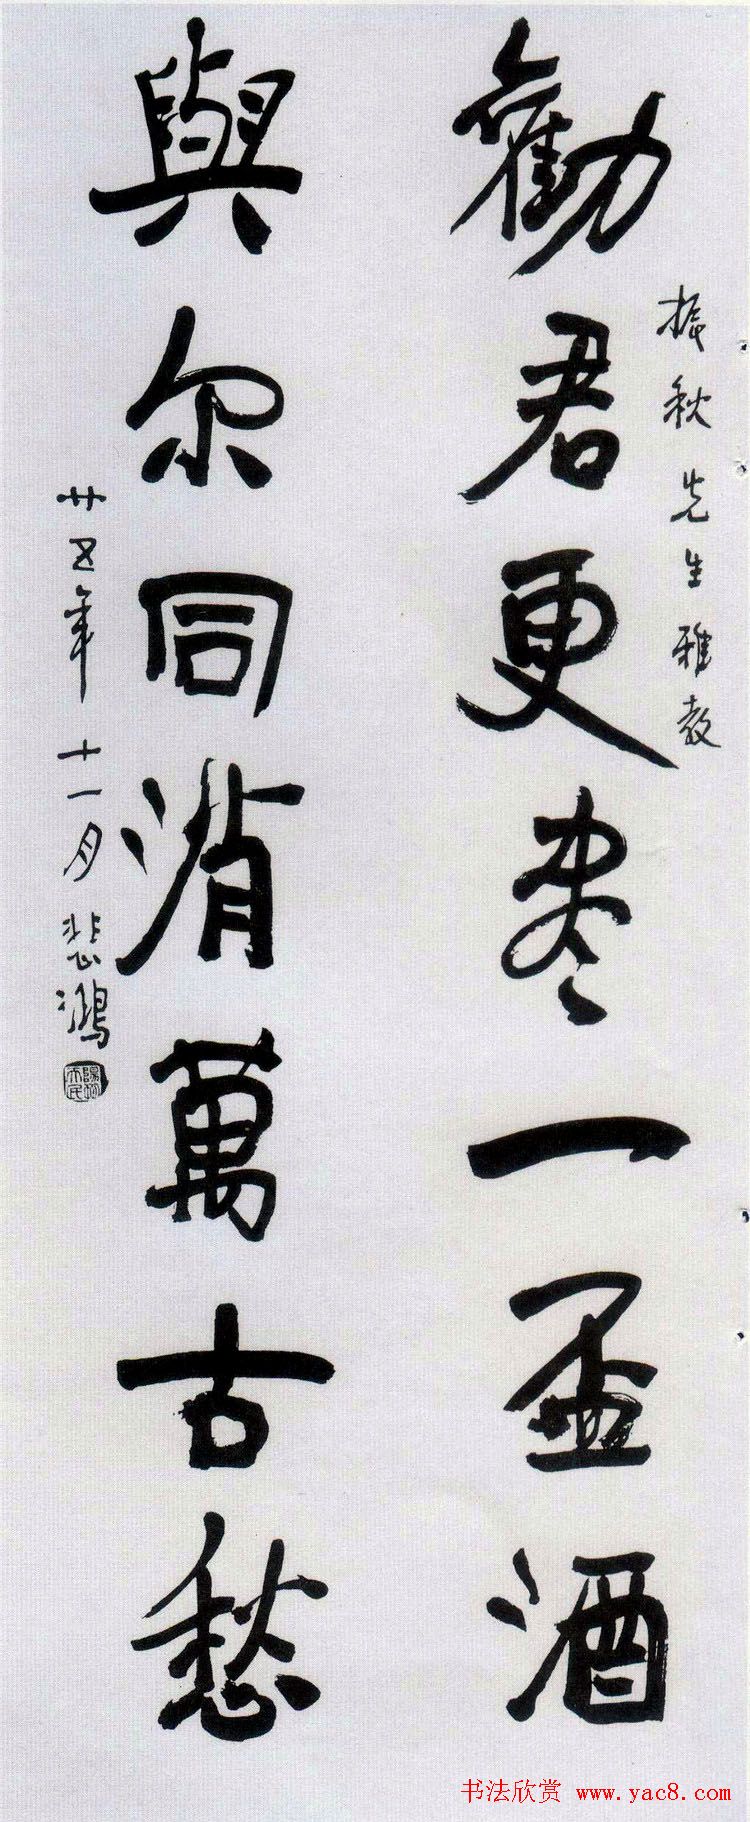 振秋先生雅教
勸君更盡一盃酒
與尔同消萬古愁
廿五年十一月悲鴻
书法欣赏 www.yac8.com